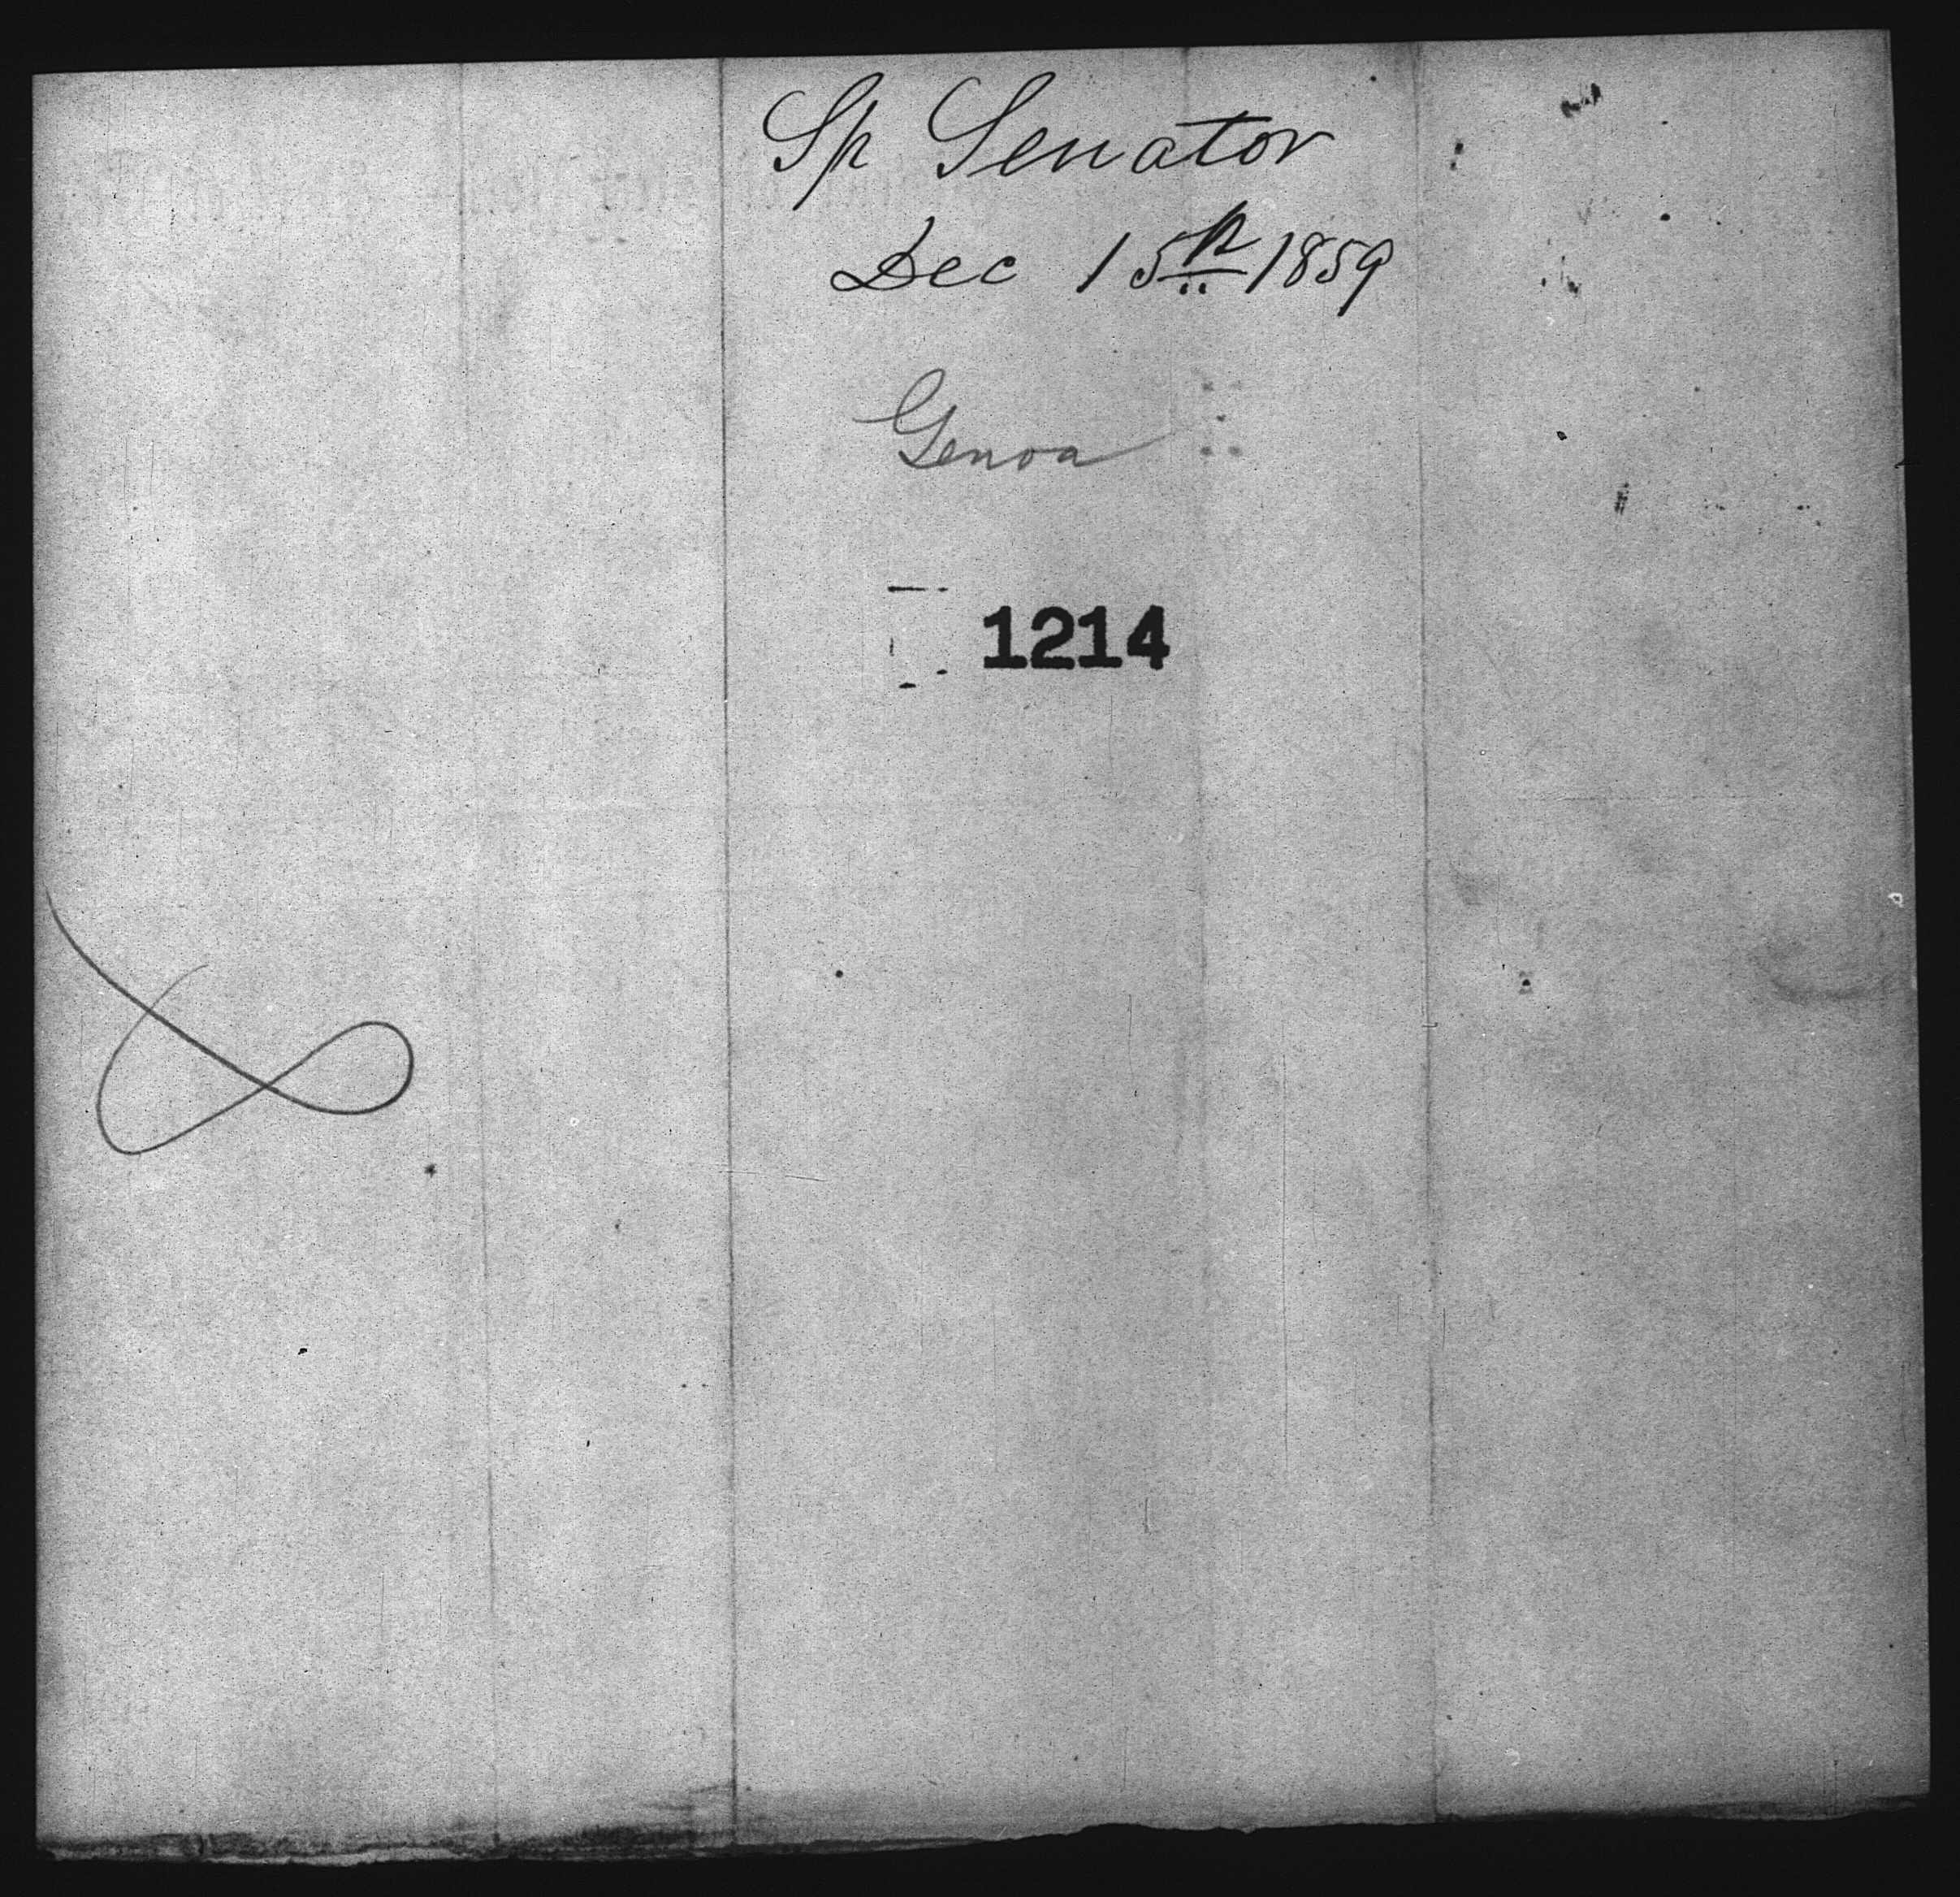 Sp Senator
Dec 15th 1859
Genoa
1214